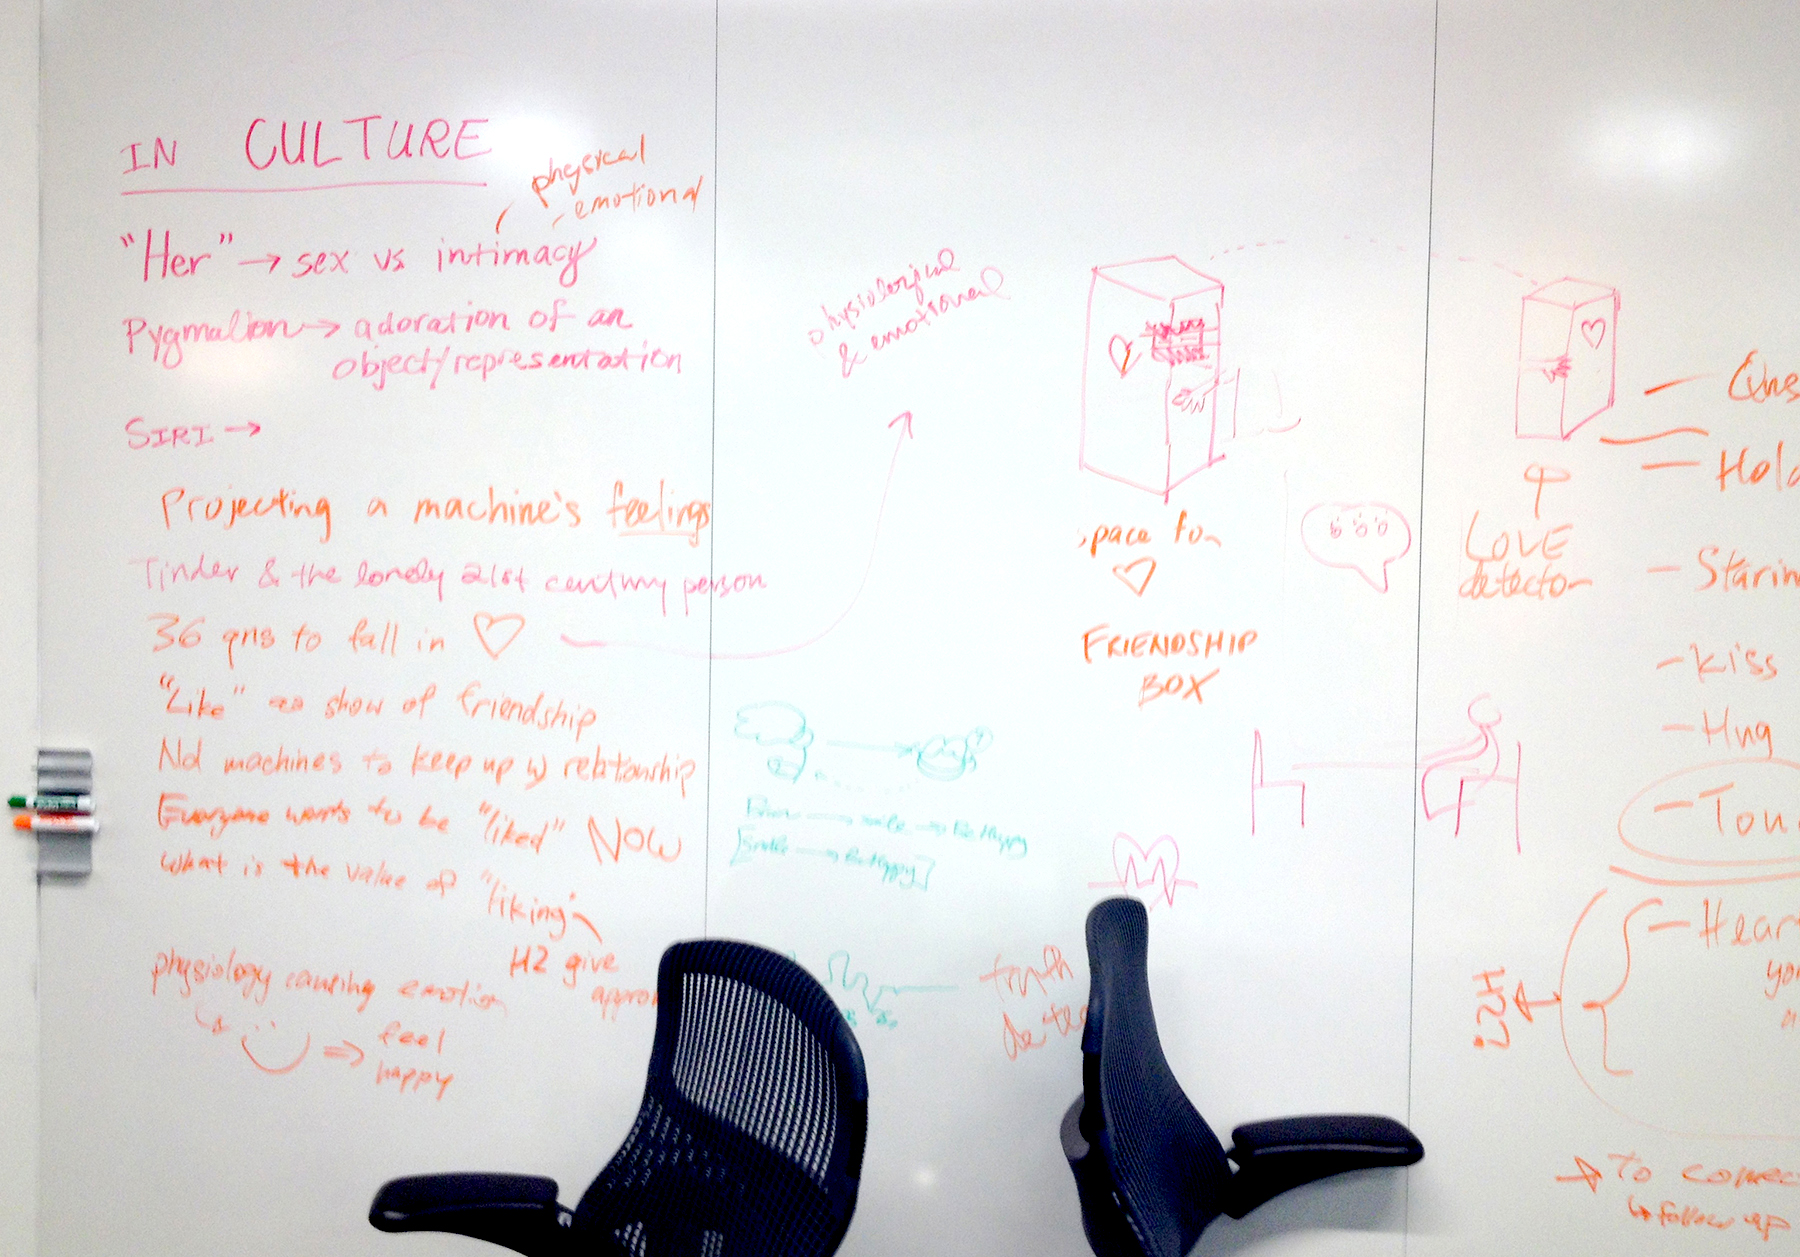 IN CULTURE
physical
emotional
"Her" → sex vs intimacy
Pygmalion → adoration of an
object/representation
SIRI →
Projecting a machine's feelings
Tinder & the lonely 21st century person
36 qns to fall in ♡
"Like" as show of friendship
Nd machines to keep up w) relationship
Everyone wants to be "liked" NOW
What is the value of "liking"
H2 give
physiology causing emotion
feel
happy
physiological
& emotional
→ Be Happy
truth
space for
♡
FRIENDSHIP
BOX
LOVE
detector
- Kiss
- Hug
H2i
→ To
↳ follow up